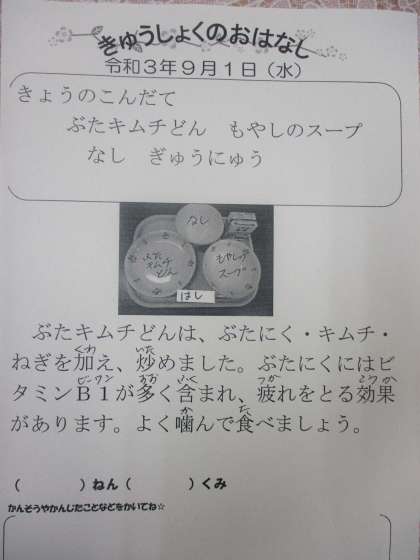 きゅうしょくのおはなし
令和3年9月1日（水）
きょうのこんだて
ぶたキムチどん　もやしのスープ
なし　ぎゅうにゅう
なし
ぶた
キムチ
どん
もやしの
スープ
はし
ぶたキムチどんは、ぶたにく・キムチ・
くわ　いた
ねぎを加え、炒めました。ぶたにくにはビ
ビーワン　おお　ふく　つか　こうか
タミンB1が多く含まれ、疲れをとる効果
か　た
があります。よく噛んで食べましょう。
（　　　）ねん（　　　）くみ
かんそうやかんじたことなどをかいてね☆